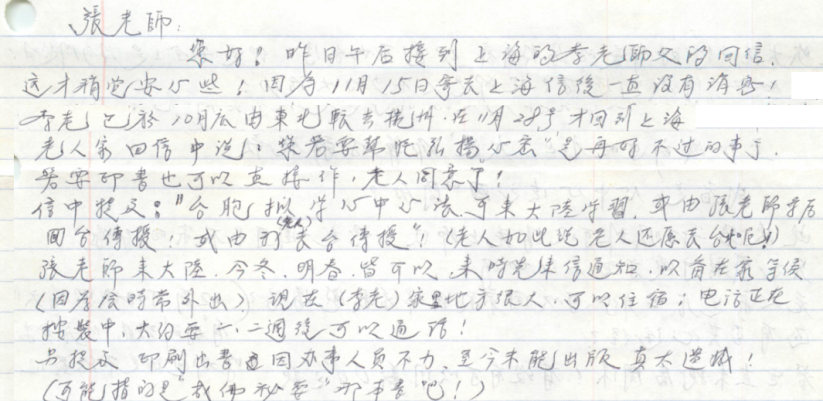 張老師:
您好！昨日午后接到上海的李老師父的回信，
这才稍觉安心些！因为11月15日寄去上海信後一直没有消息！
李老已於10月底由東北転去杭州．在11月28号才回到上海
老人家回信中说："您若要帮忙弘揚心宏"是再好不过的事了．
若要印書也可以直接作，老人同意了！
信中提及："台胞拟学心中心法．可来大陸学習，或由張老師学后
回台傳授！或由我(老人)去台傳授"！(老人如此说 老人还愿去台呢!)
張老師来大陸．今冬．明春．皆可以，来時先来信通知．以肯在家等候
(因为层時常外出) 现在(李老)家里地方很大．可以住宿；电话正在
按裝中，大约要一、二週後可以通話！
另提及 印刷出書 因办事人员不力．至今未能出版 真太遗憾！
(可能指的是"成佛秘要"那本書吧！)